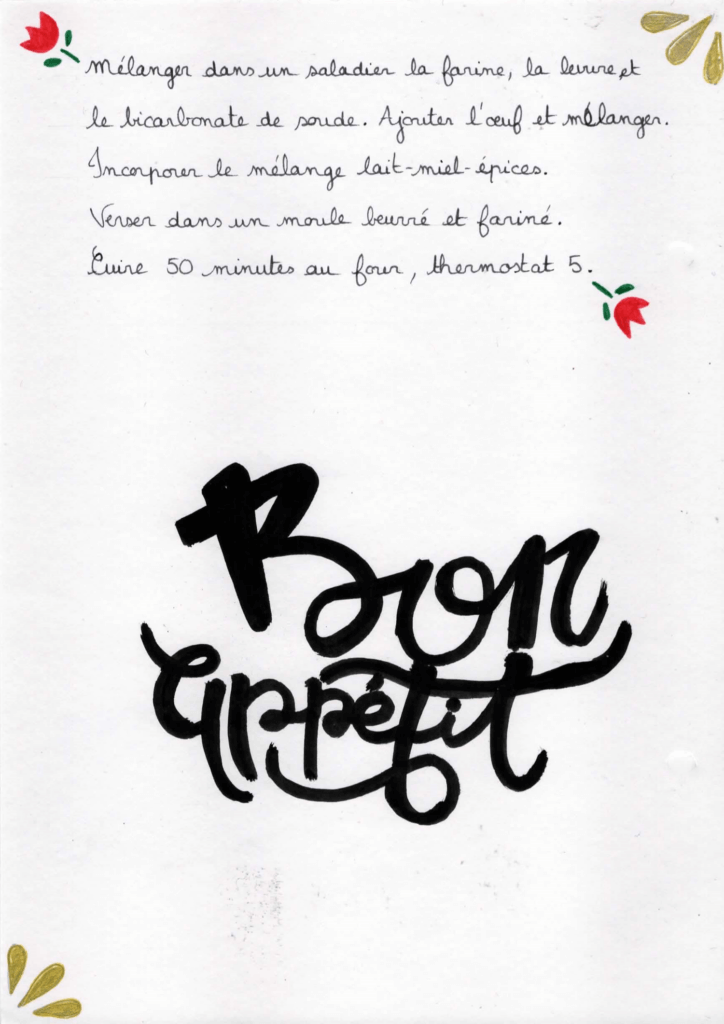 Mélanger dans un saladier la farine, la levure, et
le bicarbonate de soude. Ajouter l'œuf et mélanger.
Incorporer le mélange lait-miel-épices.
Verser dans un moule beurré et fariné.
Cuire 50 minutes au four, thermostat 5.
Bon
appétit